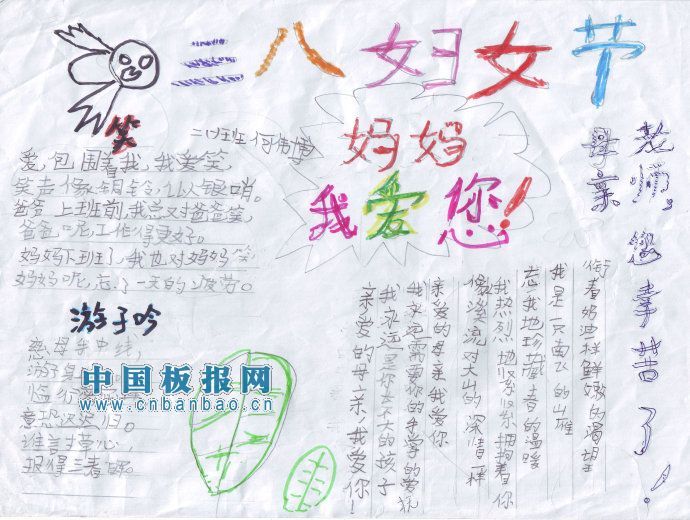 三八妇女节
笑
二(1)班 何
妈妈
我爱您!
爱,包围着我,我爱笑,
笑声像银铃,似银哨。
爸爸上班前,我总对爸爸笑,
爸爸呢,工作得更好。
妈妈下班了,我也对妈妈笑
妈妈呢,忘了一天的疲劳。
游子吟
慈母手中线,
游子身
临行
意恐迟迟归。
谁言寸草心,
报得三春晖。
中国板报网
www.cnbanbao.cn
母亲
您辛苦了!
衔着奶油样鲜嫩的渴望
我是一只南飞的山雀
忘我地珍藏春的温暖
我热烈地紧紧拥抱着你
像溪流对大山的深情一样
亲爱的母亲我爱你
我永远需要你的
我永远是你长不大的孩子
亲爱的母亲,我爱你!